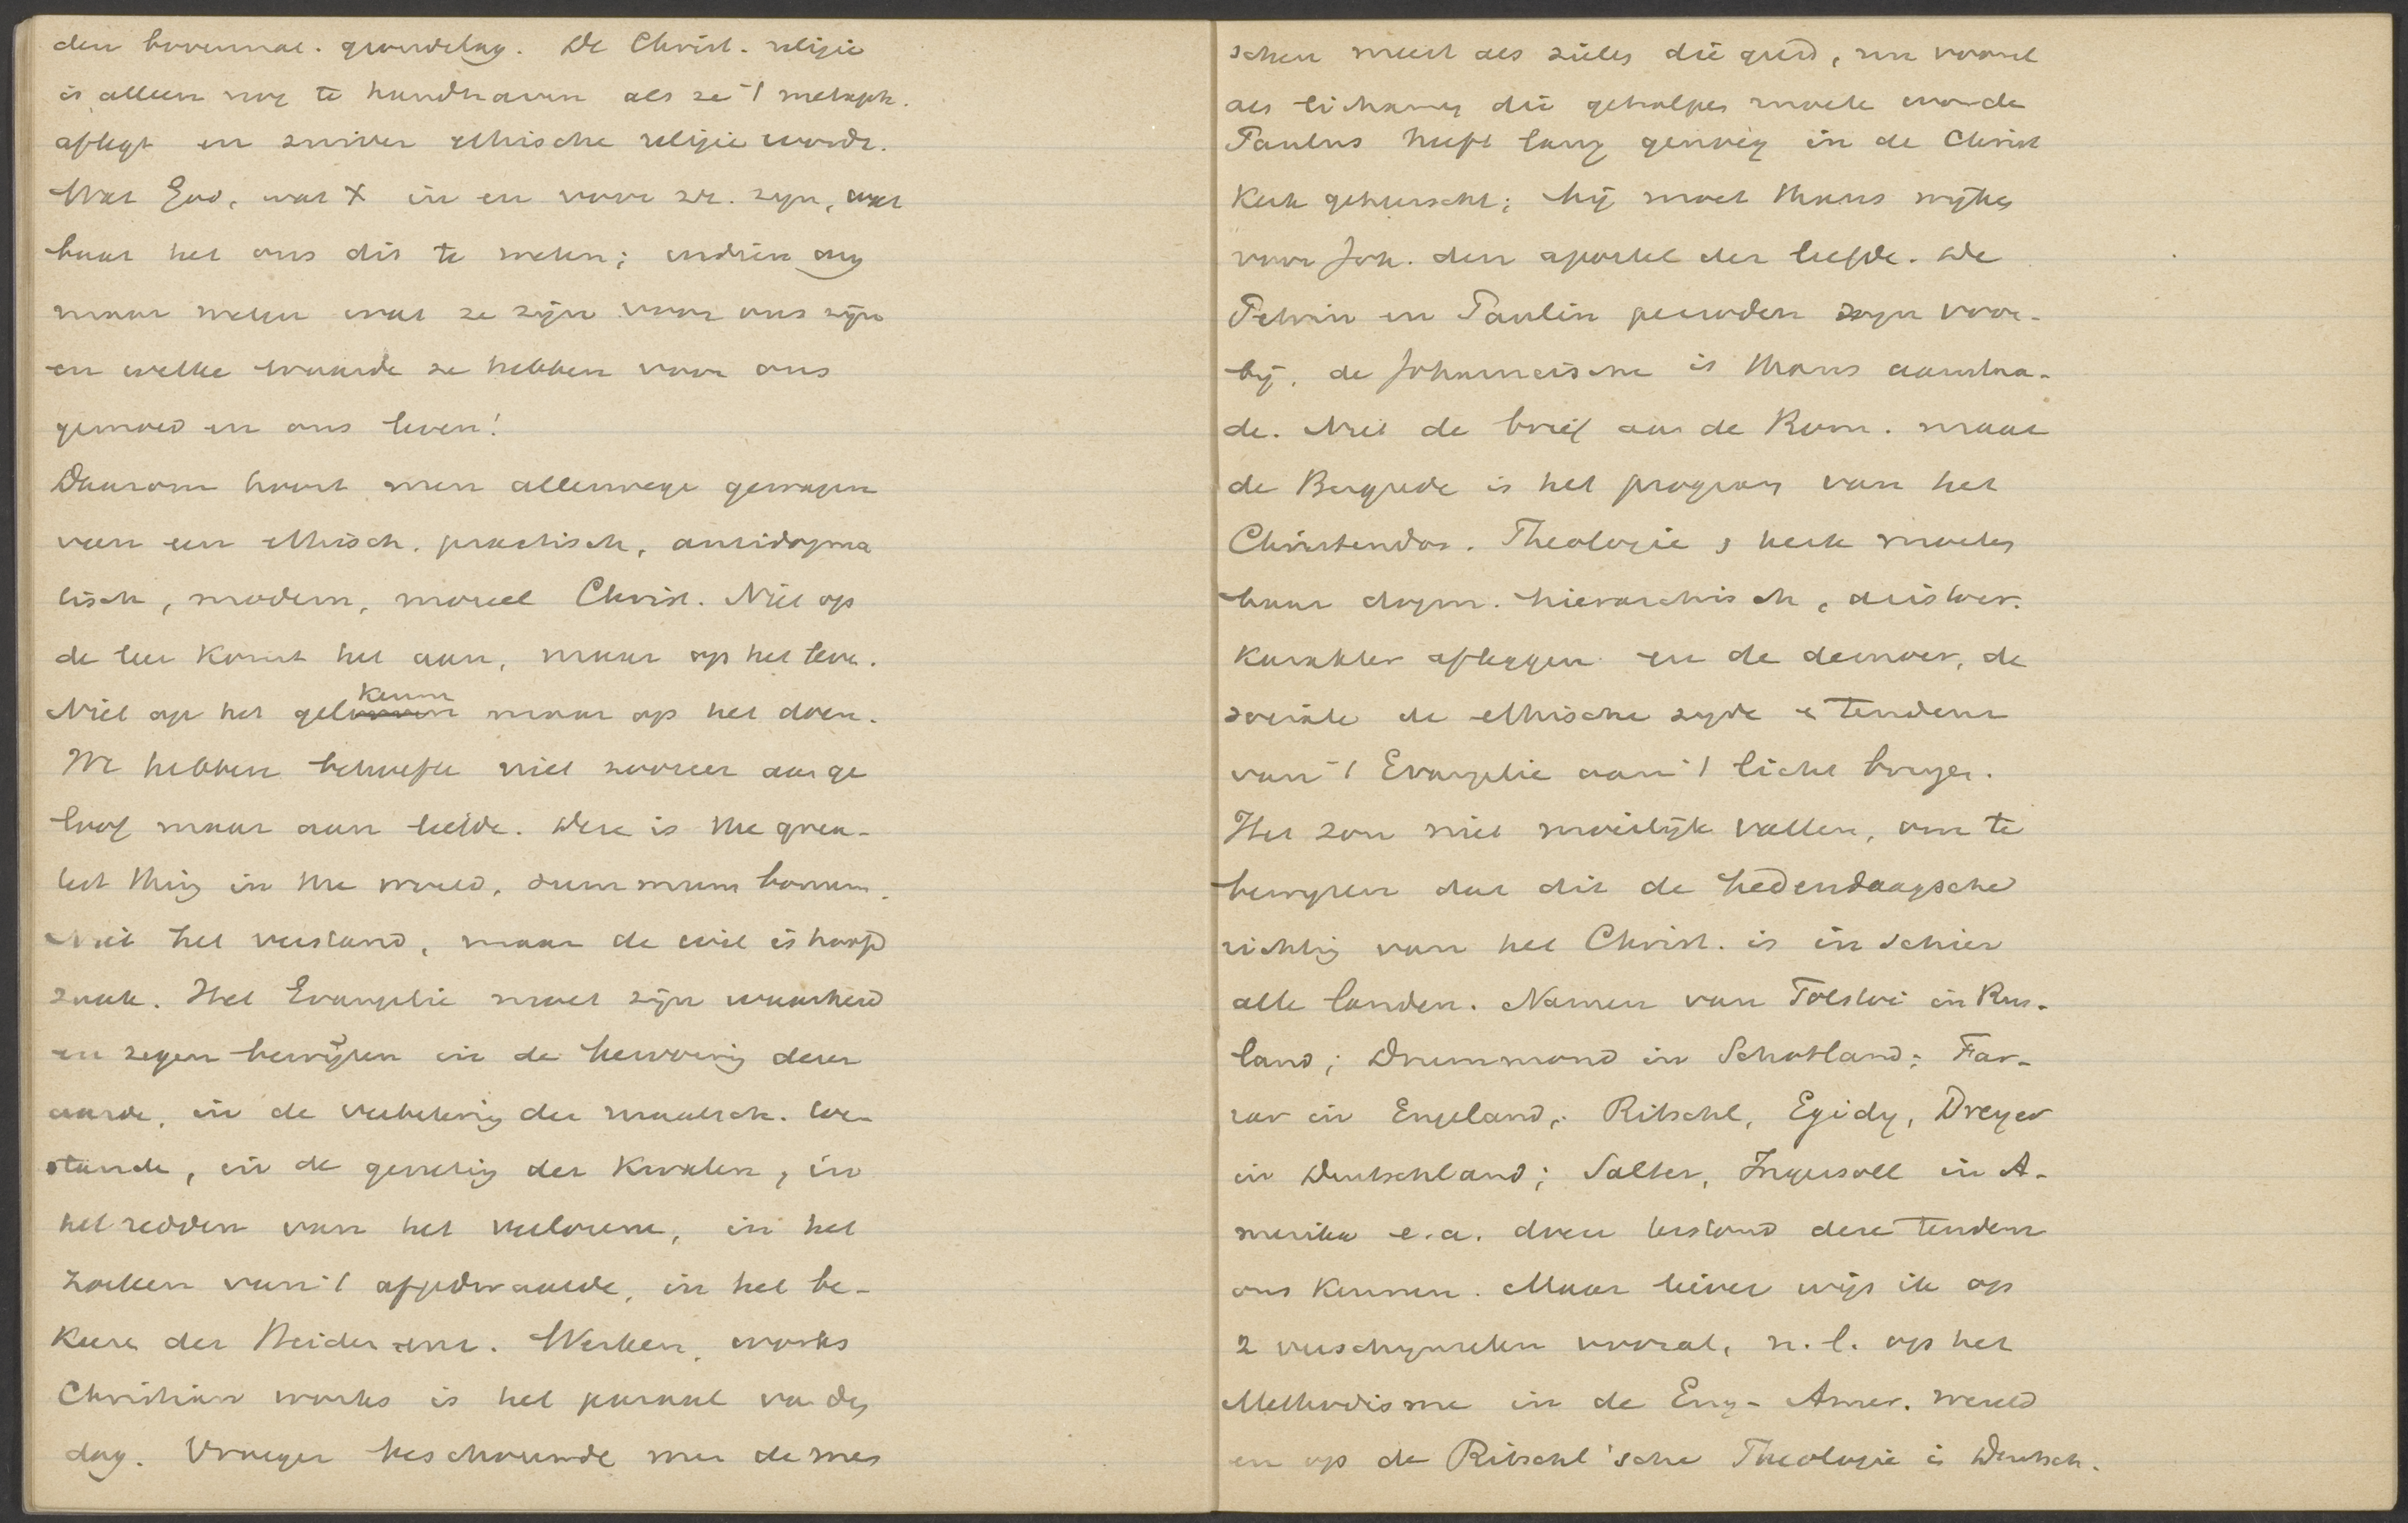 den bovennat. grondslag. De Christ. religie
is alleen nog te handhaven als ze 't metaph.
aflegt en zuiver ethische religie wordt.
Wat God, wat X in en voor zr. zyn, wat
baat het ons dit te weten; indien wy
maar weten wat ze zijn voor ons zijn
en welke waarde ze hebben voor ons
gemoed en ons leven!
Daarom hoort men allerwege gewagen
van een ethisch. practisch, antidogma
tisch, modern, moreel Christ. Niet op
de leer komt het aan, maar op het leven.
Niet op het gelooven kennen maar op het doen.
We hebben behoefte niet zoozeer aan ge
loof maar aan liefde. Deze is the grea-
test thing in the world, summum bonum.
Niet het verstand, maar de wil is hoofd
zaak. Het Evangelie moet zijn waarheid
en zegen bewijzen in de hervorming dezer
aarde, in de verbetering der maatsch. toe-
stande, in de genezing der kwalen, in
het redden van het verlorene, in het
zoeken van 't afgedwaalde, in het be-
keeren der Heidenen enz. Werken, works
Christian works is het parool van den
dag. Vroeger beschouwde men de men
schen meest als zielen die gered, nu vooral
als lichamen die geholpen moete worde
Paulus heeft lang genoeg in de Christ
Kerk geheerscht; hij moet thans wijken
voor Joh. den apostel der liefde. De
Petrin en Paulin perioden zyn voor-
bij, de Johanneische is thans aanstaa-
de. Niet de brief aan de Rom. maar
de Bergrede is het program van het
Christendom. Theologie & kerk moeten
haar dogm. hierarchisch, aristocr.
karakter afleggen en de democr, de
sociale de ethische zyde & tendenz
van 't Evangelie aan 't licht brengen.
Het zou niet moeilijk vallen, om te
bewyzen dat dit de hedendaagsche
richting van het Christ. is in schier
alle landen. Namen van Tolstoi in Rus-
land; Drummond in Schotland; Far-
rar in Engeland; Ritschl, Egidy, Dreyer
in Deutschland; Salter, Ingersoll in A-
merika e.a. doen terstond deze tendenz
ons kennen. Maar liever wijs ik op
2 verschynselen vooral, n.l. op het
Methodisme in de Eng- Amer. wereld
en op de Ritschl'sche Theologie in Deutsch.